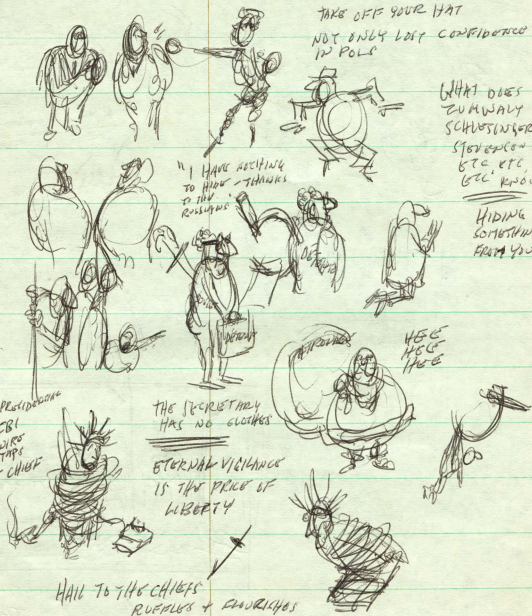 TAKE OFF YOUR HAT
NOT ONLY LOST CONFIDENCE
IN POLS
WHAT DOES
ZUMWALT
SCHLESINGER
STEVENSON
ETC ETC
ETC. KNO
HIDING
SOMETHIN
FROM YOU
"I HAVE NOTHING
TO HIDE - THANKS
TO THE
RUSSIANS"
DETENTE
HEE
HEE
HEE
PRESIDENTIAL
FBI
WIRE
TAPS
CHIEF
THE SECRETARY
HAS NO CLOTHES
ETERNAL VIGILANCE
IS THE PRICE OF
LIBERTY
HAIL TO THE CHIEFS
RUFFLES + FLOURISHES